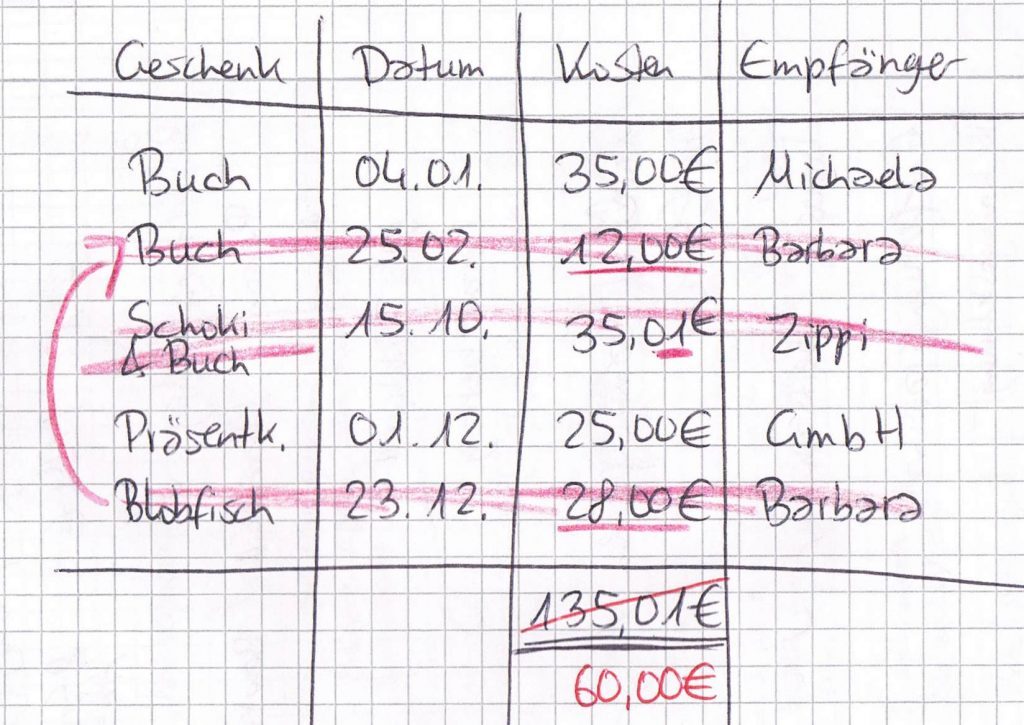 Geschenk Datum Kosten Empfänger
Buch 04.01. 35,00€ Michaela
Buch 25.02. 12,00€ Barbara
Schoki 15.10. 35,01€ Zippi
& Buch
Präsentk. 01.12. 25,00€ GmbH
Blobfisch 23.12. 28,00€ Barbara
135,01€
60,00€